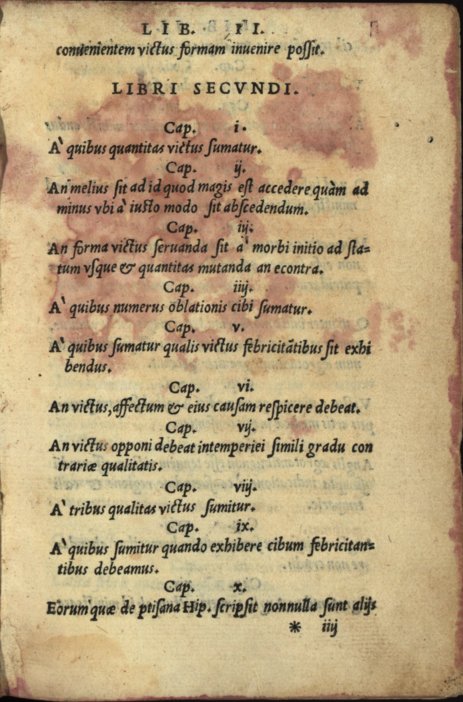 LIB. II.
conuenientem victus formam inuenire possit.
LIBRI SECVNDI.
Cap. i.
A' quibus quantitas victus sumatur.
Cap. ij.
An melius sit ad id quod magis est accedere quàm ad
minus vbi à iusto modo sit abscedendum.
Cap. iij.
An forma victus seruanda sit à morbi initio ad sta=
tum vsque & quantitas mutanda an econtra.
Cap. iiij.
A' quibus numerus oblationis cibi sumatur.
Cap. v.
A' quibus sumatur qualis victus febricitãtibus sit exhi
bendus.
Cap. vi.
An victus, affectum & eius causam respicere debeat.
Cap. vij.
An victus opponi debeat intemperiei simili gradu con
trariæ qualitatis.
Cap. viij.
A' tribus qualitas victus sumitur.
Cap. ix.
A' quibus sumitur quando exhibere cibum febricitan=
tibus debeamus.
Cap. x.
Eorum quæ de ptisana Hip. scripsit nonnulla sunt alijs
* iiij